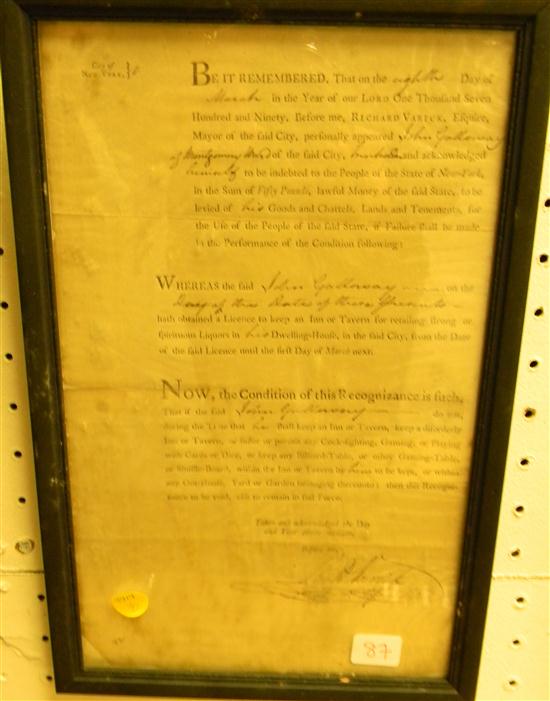 City of
NEW YORK,
BE IT REMEMBERED, That on the eighth Day of
March in the Year of our LORD One Thousand Seven
Hundred and Ninety, Before me, RICHARD VARICK, Esquire,
Mayor of the said City, personally appeared John Galloway
of Montgomery Ward of the said City, and acknowledged
himself to be indebted to the People of the State of New-York,
in the Sum of Fifty Pounds, lawful Money of the said State, to be
levied of his Goods and Chattels, Lands and Tenements, for
the Use of the People of the said State, if Failure shall be made
in the Performance of the Condition following:
WHEREAS the said John Galloway on the
Day of the Date of these Presents
hath obtained a Licence to keep an Inn or Tavern for retailing strong or
spirituous Liquors in his Dwelling-House, in the said City, from the Date
of the said Licence until the first Day of March next.
NOW, the Condition of this Recognizance is such,
That if the said John Galloway do not,
during the Time that he shall keep an Inn or Tavern, keep a disorderly
Inn or Tavern, or suffer or permit any Cock-fighting, Gaming, or Playing
with Cards or Dice, or keep any Billiard-Table, or other Gaming-Table,
or Shuffle-Board, within the Inn or Tavern by him to be kept, or within
any Out-House, Yard or Garden belonging thereunto; then this Recogni-
zance to be void, else to remain in full Force.
Taken and acknowledged the Day
and Year above written,
Before me,
87